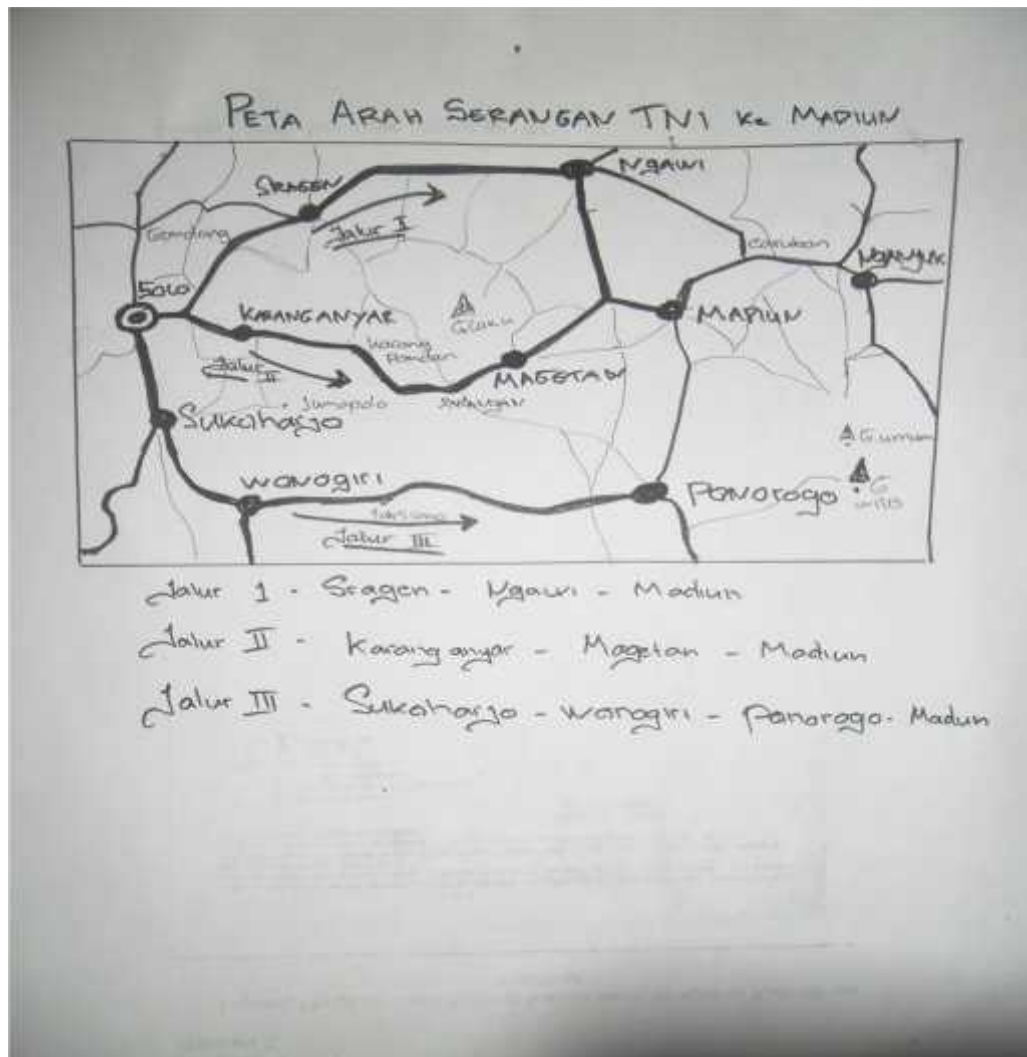 PETA ARAH SERANGAN TNI Ke MADIUN
NGAWI
SRAGEN
Jalur I
Gemolong
Caruban
NGANJUK
SOLO
KARANGANYAR
G Lawu
MADIUN
Karang Pandan
Jalur II
MAGETAN
Jumapolo
Sukoharjo
G. Liman
WONOGIRI
PONOROGO
G Wilis
Jalur III
Jalur 1 - Sragen - Ngawi - Madiun
Jalur II - Karanganyar - Magetan - Madiun
Jalur III - Sukoharjo - Wonogiri - Ponorogo - Madun